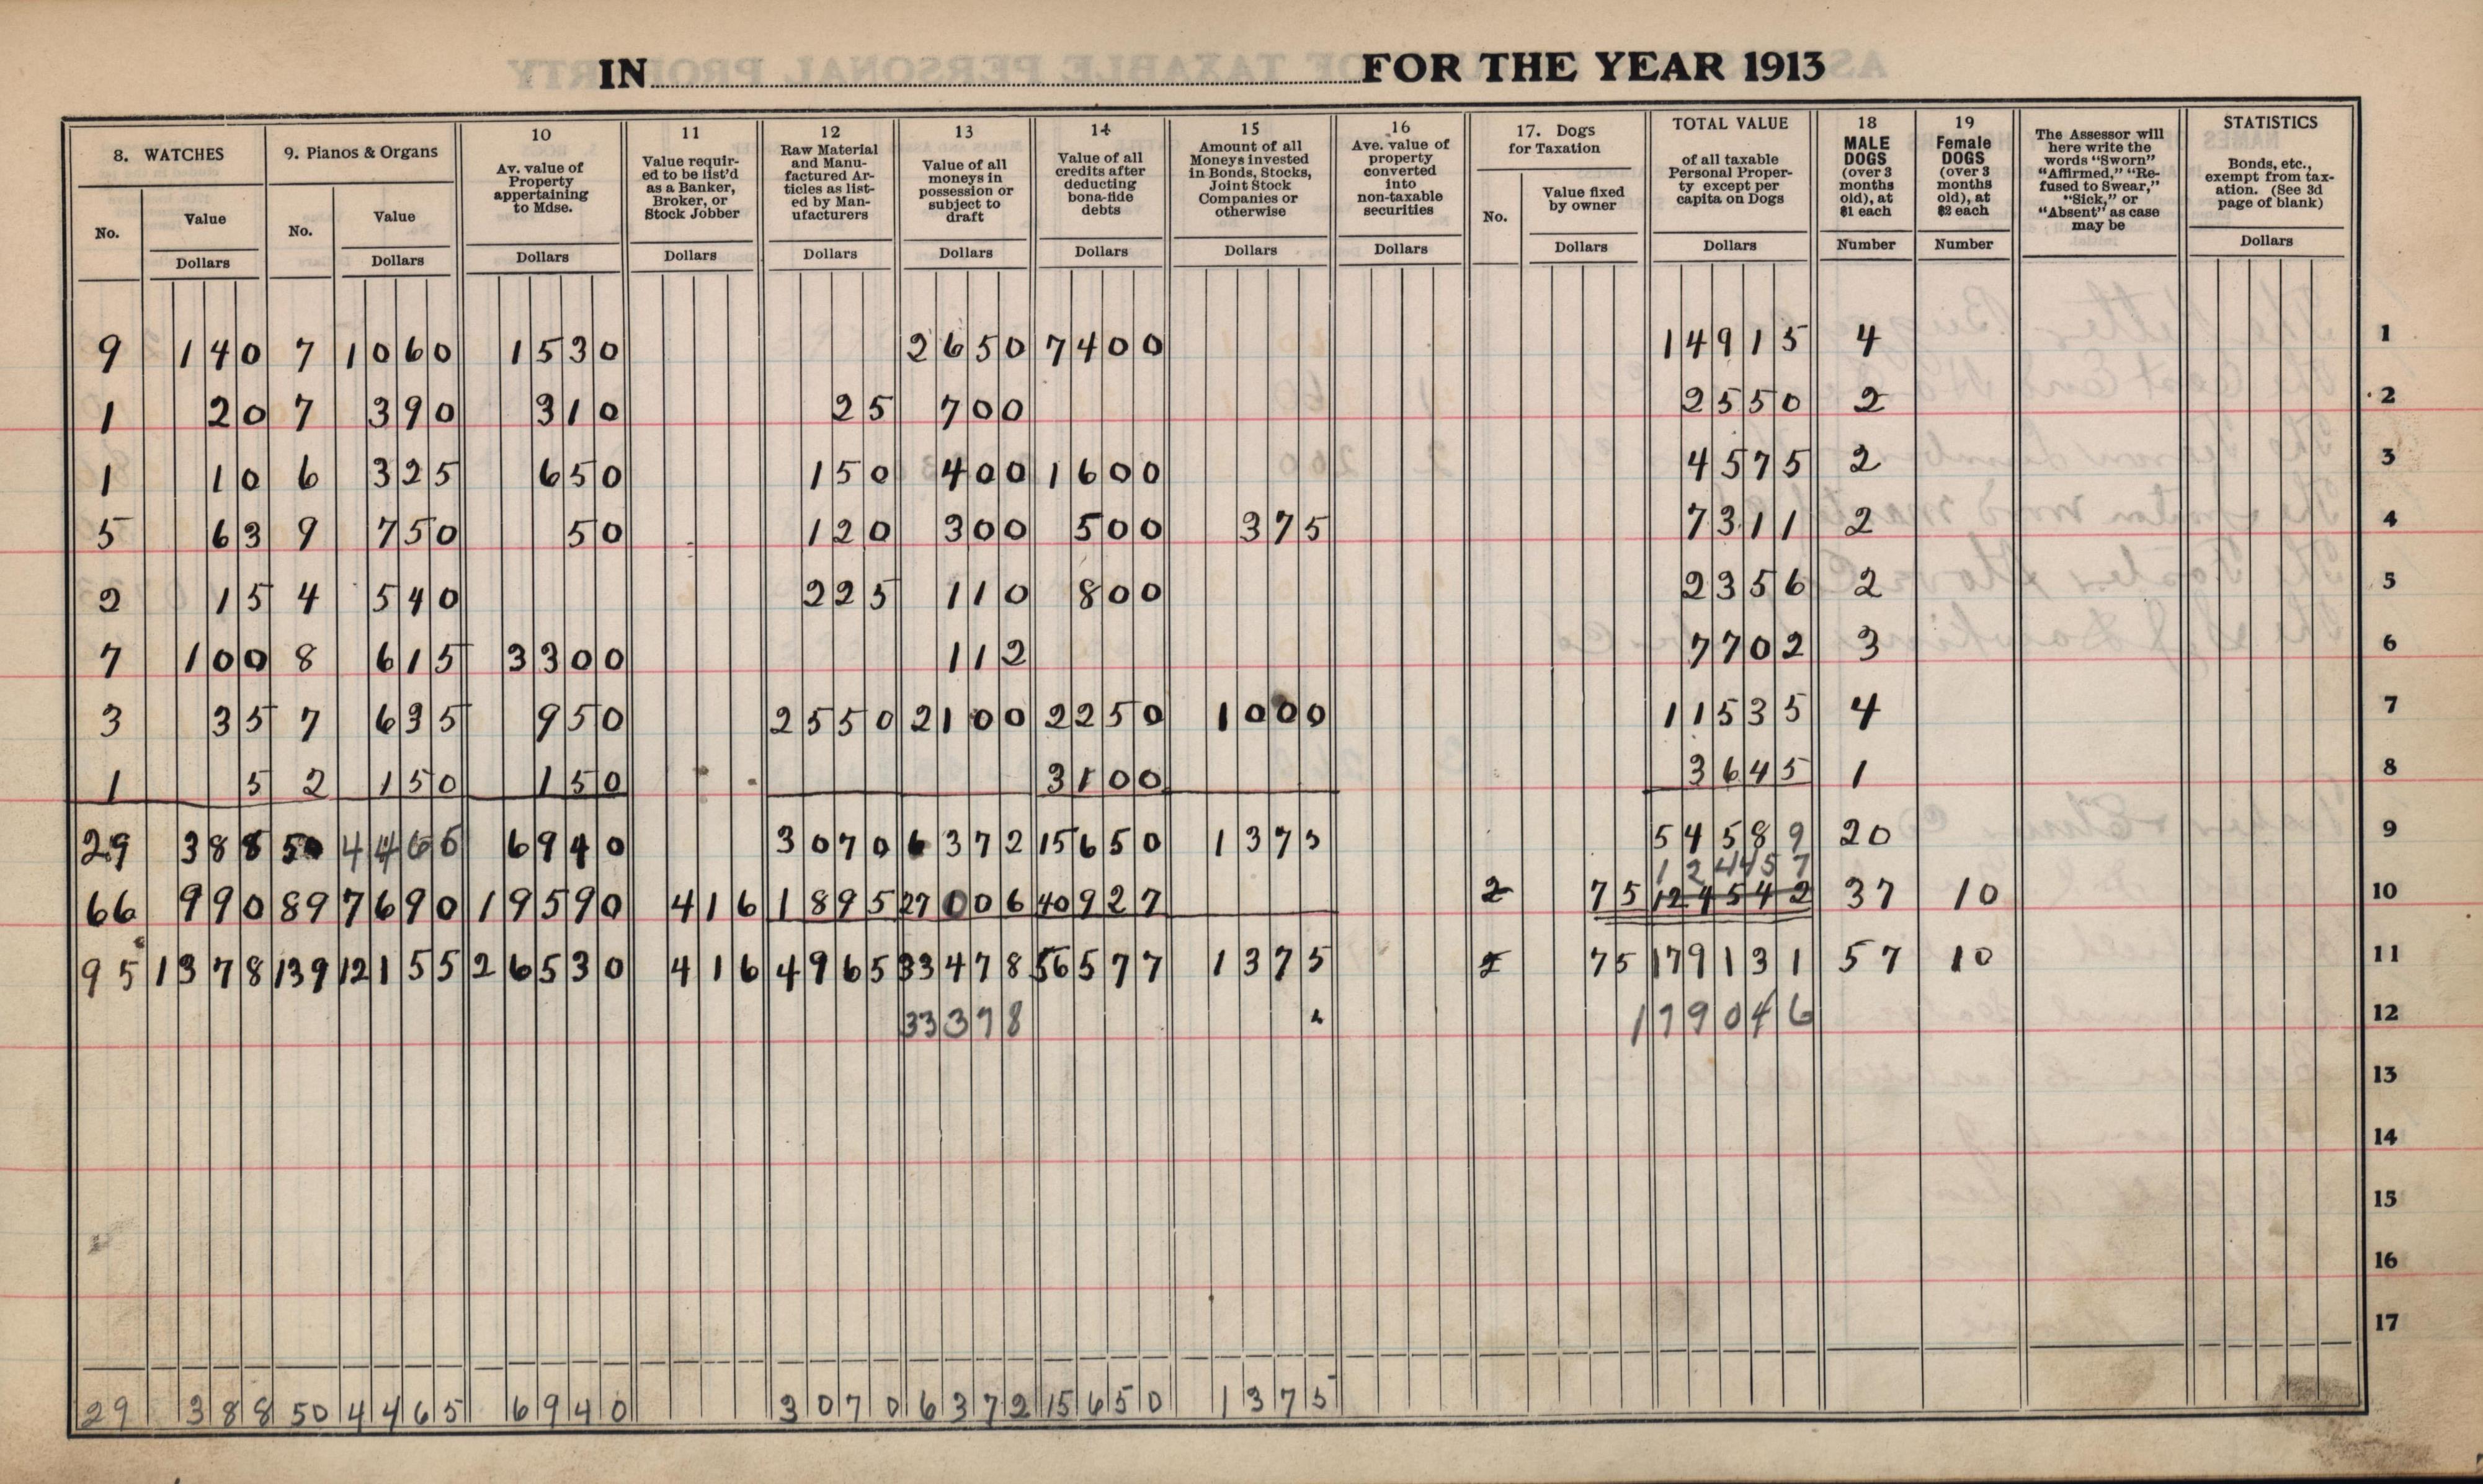 IN FOR THE YEAR 1913
8. WATCHES 9. Pianos & Organs 10 Av. value of Property appertaining to Mdse. 11 Value requir-ed to be list'd as a Banker, Broker, or Stock Jobber 12 Raw Material and Manu-factured Ar-ticles as list-ed by Man-ufacturers 13 Value of all moneys in possession or subject to draft 14 Value of all credits after deducting bona-fide debts 15 Amount of all Moneys invested in Bonds, Stocks, Joint Stock Companies or otherwise 16 Ave. value of property converted into non-taxable securities 17. Dogs for Taxation TOTAL VALUE of all taxable Personal Proper-ty except per capita on Dogs 18 MALE DOGS (over 3 months old), at $1 each 19 Female DOGS (over 3 months old), at $2 each The Assessor will here write the words "Sworn" "Affirmed," "Re-fused to Swear," "Sick," or "Absent" as case may be STATISTICS Bonds, etc., exempt from tax-ation. (See 3d page of blank)
No. Value No. Value No. Value fixed by owner
Dollars Dollars Dollars Dollars Dollars Dollars Dollars Dollars Dollars Dollars Dollars Number Number Dollars
9 140 7 1060 1530 2650 7400 14915 4 1
1 20 7 390 310 25 700 2550 2 2
1 10 6 325 650 150 400 1600 4575 2 3
5 63 9 750 50 120 300 500 375 7311 2 4
2 15 4 540 225 110 800 2356 2 5
7 100 8 615 3300 112 7702 3 6
3 35 7 635 950 2550 2100 2250 1000 11535 4 7
1 5 2 150 150 3100 3645 1 8
29 388 50 4465 6940 3070 6372 15650 1375 54589 20 9
124457
66 990 89 7690 19590 416 1895 27006 40927 2 75 124542 37 10 10
95 1378 139 12155 26530 416 4965 33478 56577 1375 75 179131 57 10 11
33378 179046 12
13
14
15
16
17
29 388 50 4465 6940 3070 6372 15650 1375